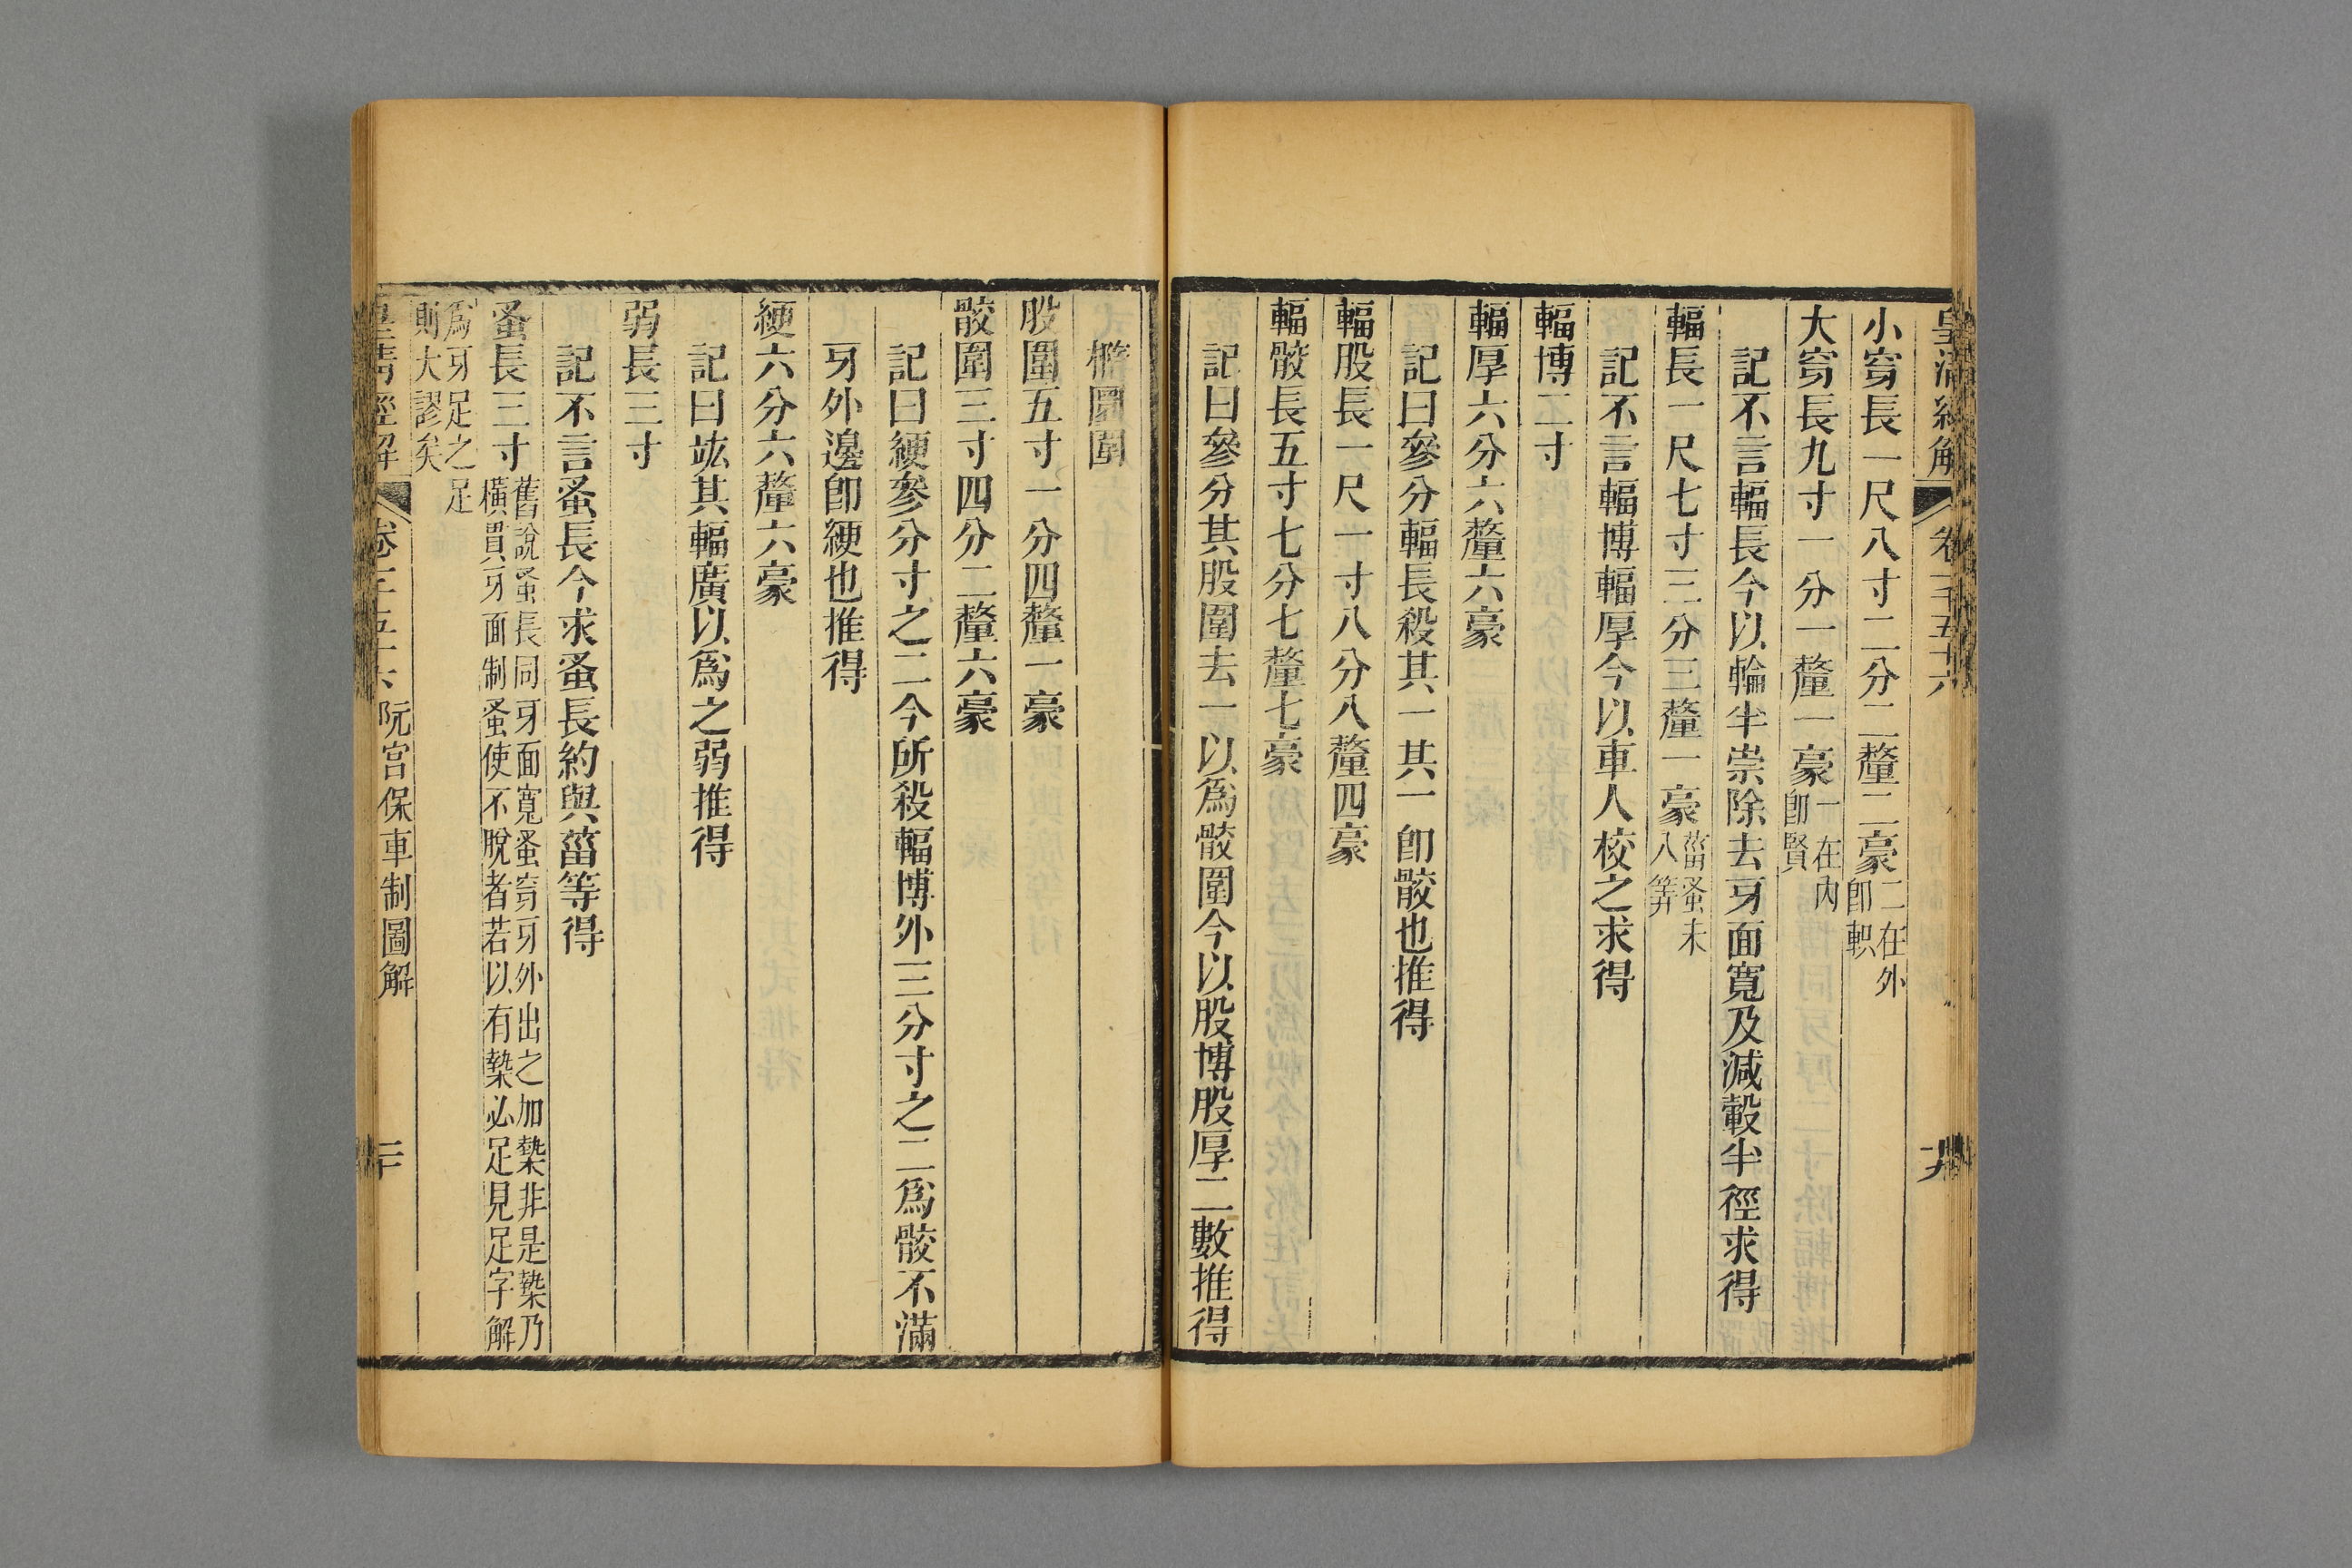 皇淸經解 卷一千五十六 十九
小穿長一尺八寸二分二釐二豪二在外卽軹
大穿長九寸一分一釐一豪一在內卽賢
記不言輻長今以輪半崇除去牙面寬及減轂半徑求得
輻長一尺七寸三分三釐一豪菑蚤未入筭
記不言輻博輻厚今以車人校之求得
輻博二寸
輻厚六分六釐六豪
記曰參分輻長殺其一其一卽骹也推得
輻股長一尺一寸八分八釐四豪
輻骹長五寸七分七釐七豪
記曰參分其股圍去一以爲骹圍今以股博股厚二數推得
橢圓圍
股圍五寸一分四釐一豪
骹圍三寸四分二釐六豪
記曰綆參分寸之二今所殺輻博外三分寸之二爲骹不滿
牙外邊卽綆也推得
綆六分六釐六豪
記曰竑其輻廣以爲之弱推得
弱長三寸
記不言蚤長今求蚤長約與菑等得
蚤長三寸舊說蚤長同牙面寬蚤穿牙外出之加槷非是槷乃橫貫牙面制蚤使不脫者若以有槷必足見足字解
爲牙足之足則大謬矣
皇淸經解 卷一千五十六 阮宮保車制圖解 二十